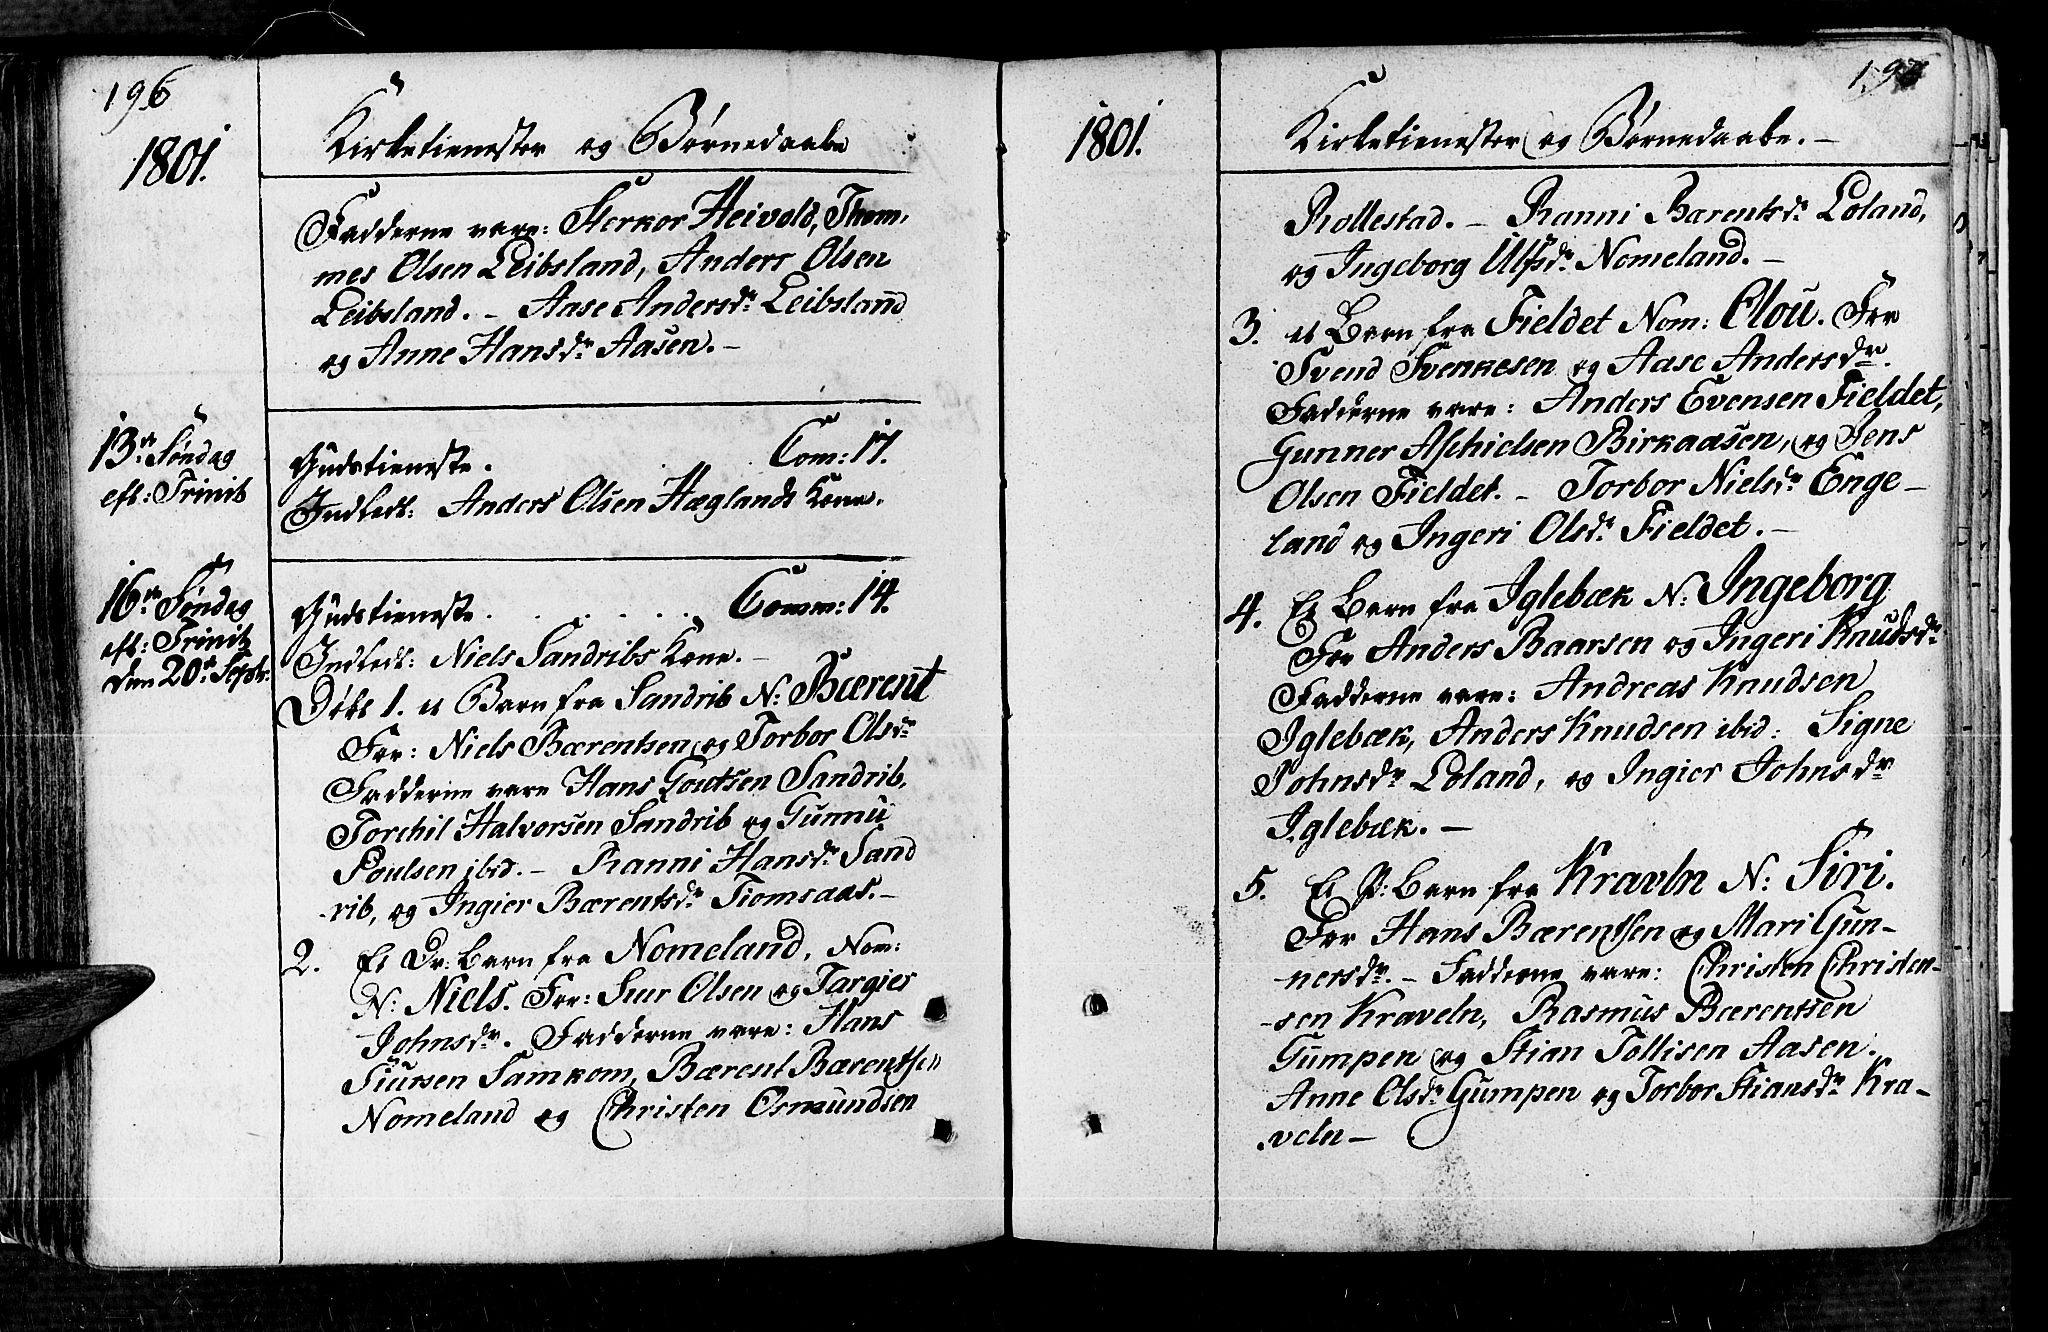 196
1801.
Kirketienester og Børnedaabe
Fadderne vare: Sterkor Heivold, Thom,
mes Olsen Leibsland, Anders Olsen
Leibsland. – Aase Andersdr Leibsland
og Anne Hansdr Aasen. –
13de Søndag
eft: Trinit
Gudstieneste. Com: 17.
Indledt: Anders Olsen Hæglands Kone.
16de Søndag
eft: Trinit
den 20de Septr.
Gudstieneste . . . . . . Comm: 14.
Indledt: Niels Sandribs Kone. –
Døbt 1. et Barn fra Sandrib N: Bærent
For: Niels Bærentsen og Torbor Olsdr
Fadderne vare Hans Goutsen Sandrib,
Torchil Halvorsen Sandrib og Gunnu
Poulsen ibid. – Ranni Hansdr Sand
rib, og Ingier Bærentsdr Tiomsaas. –
2. Et Dr: Barn fra Nomeland, Nom:
N: Niels. For: Siur Olsen og Targier
Johnsdr. Fadderne vare: Hans
Siursen Samkom, Bærent Bærentse"
Nomeland og Christen Osmundsen
1801.
Kirketienester og Børnedaabe. –
Rollestad. – Ranni Bærentsdr Loland,
og Ingeborg Ulfsdr Nomeland. –
3. et Barn fra Fieldet Nom: Olou. For
Svend Svenkesen og Aase Andersdr.
Fadderne vare: Anders Evensen Fieldet,
Gunner Aschielsen Birkaasen, og Jens
Olsen Fieldet. – Torbor Nielsdr Enge –
land og Ingeri Olsdr Fieldet. –
4. Et Barn fra Iglebæk N: Ingeborg
For Anders Baarsen og Ingeri Knudsdr
Fadderne vare: Andreas Knudsen
Iglebæk, Anders Knudsen ibid: Signe
Johnsdr Loland, og Ingier Johnsdr
Iglebæk. –
5. Et P: Barn fra Kraveln N: Siri.
For Hans Bærentsen og Mari Gun-
nersdr. – Fadderne vare: Christen Christen-
-sen Kraveln, Rasmus Bærentsen
Gumpen og Stian Tollisen Aasen.
Anne Olsdr Gumpen og Torbor Stiansdr Kra-
veln –